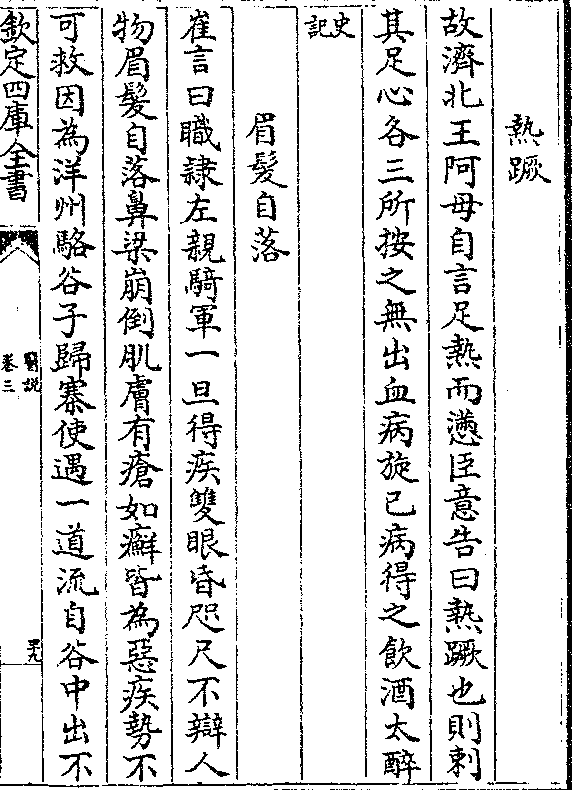 熱蹶
故濟北王阿母自言足熱而懣臣意告曰熱蹶也則刺
其足心各三所按之無出血病旋已病得之飲酒太醉
史
記
眉髮自落
崔言曰職隷左親騎軍一旦得疾雙眼昏咫尺不辯人
物眉髮自落鼻梁崩倒肌膚有瘡如癬皆為惡疾勢不
可救因為洋州駱谷子歸寨使遇一道流自谷中出不
欽定四庫全書
醫說
卷三
四九